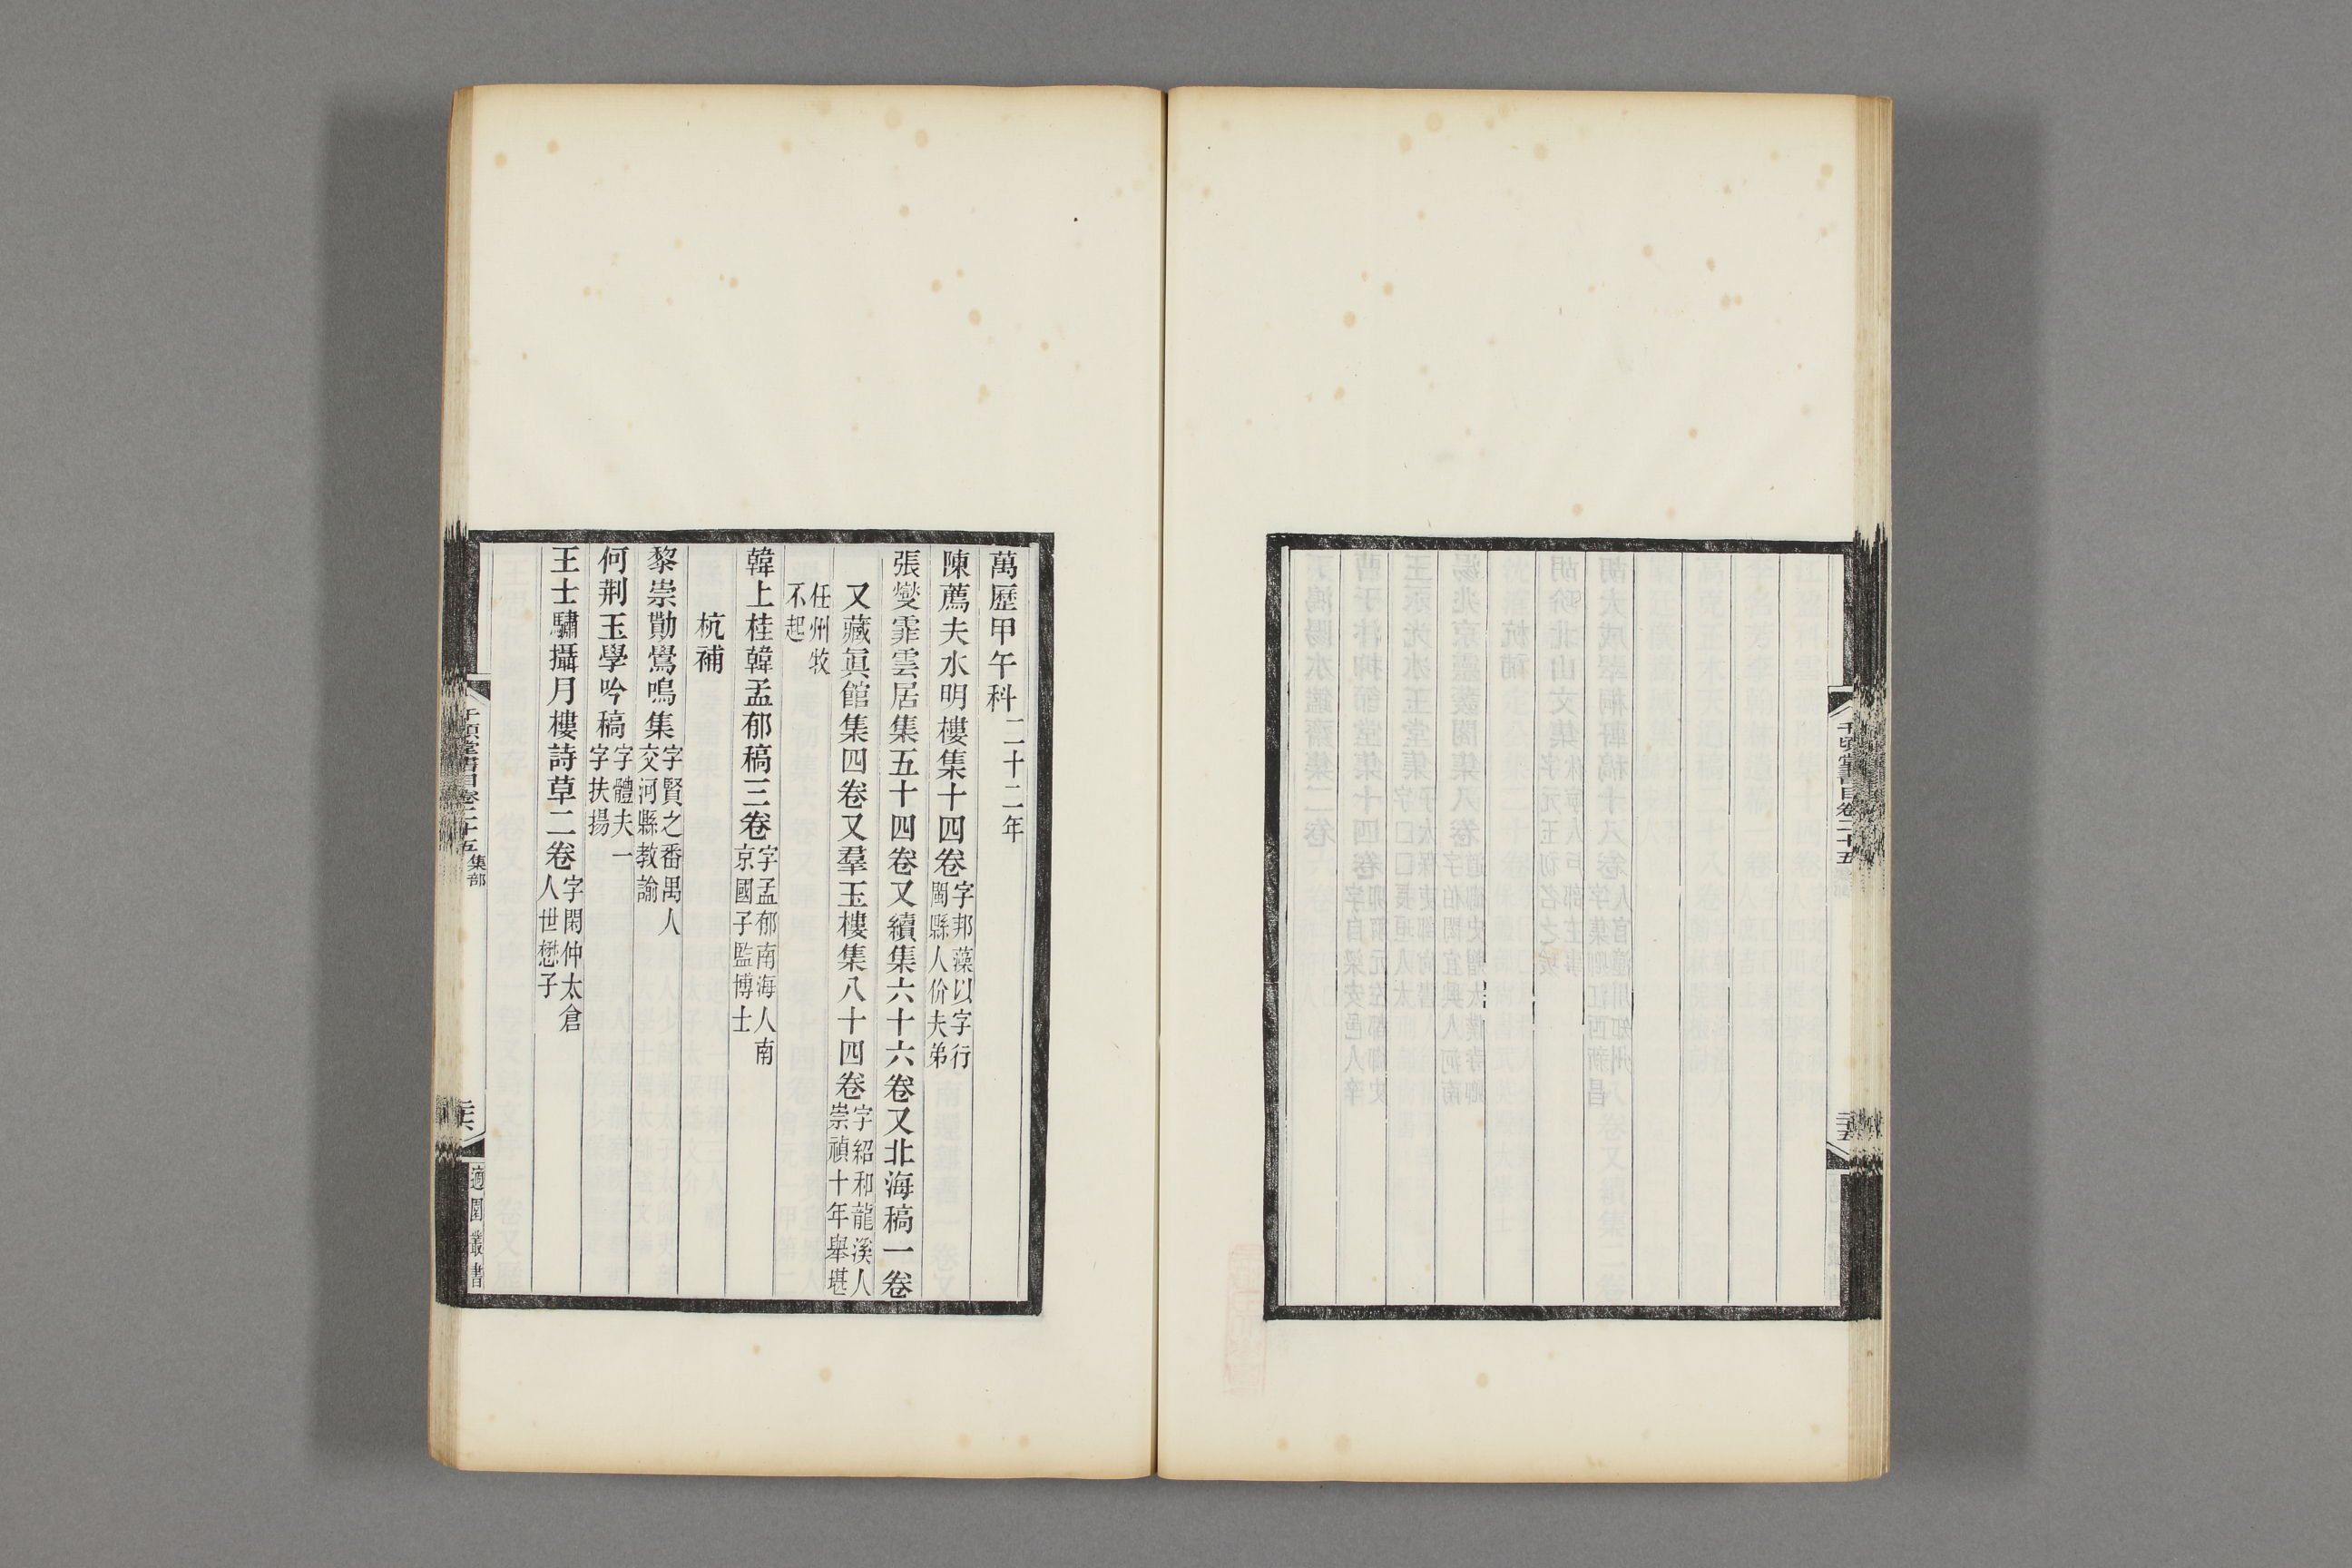 千頃堂書目卷二十五
三五
萬歷甲午科二十二年
陳薦夫水明樓集十四卷字邦藻以字行閩縣人价夫弟
張燮霏雲居集五十四卷又續集六十六卷又北海稿一卷
又藏眞館集四卷又羣玉樓集八十四卷字紹和龍溪人崇禎十年舉堪
任州牧不起
韓上桂韓孟郁稿三卷字孟郁南海人南京國子監博士
杭補
黎崇勳鸎鳴集字賢之番禺人交河縣教諭
何荆玉學吟稿字體夫一字扶揚
王士驌攝月樓詩草二卷字閑仲太倉人世懋子
千頃堂書目卷二十五 集部
三六
適園叢書